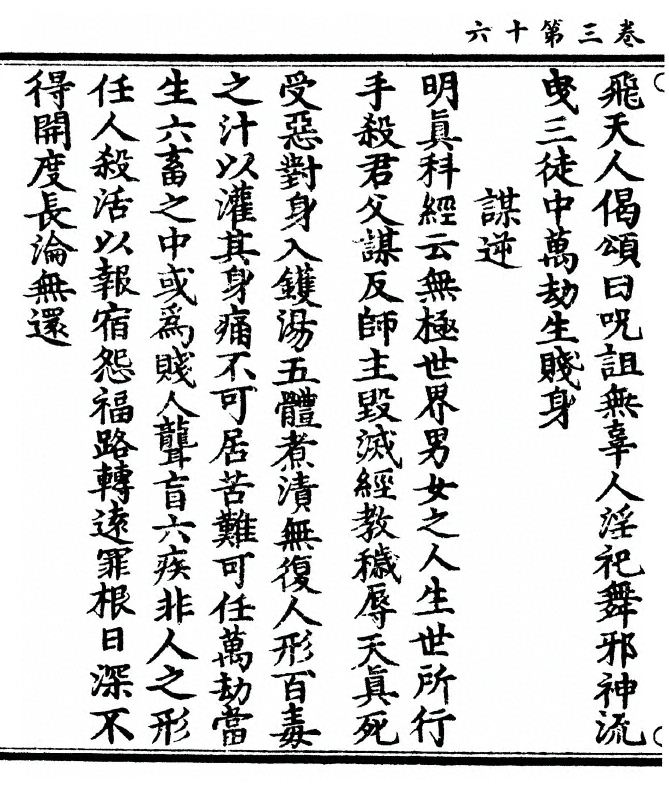 卷三第十六
飛天人偈頌曰呪詛無辜人淫祀舞邪神流
曳三徒中萬劫生賤身
謀逆
明眞科經云無極世界男女之人生世所行
手殺君父謀反師主毀滅經教穢辱天眞死
受惡對身入鑊湯五體煮漬無復人形百毒
之汁以灌其身痛不可居苦難可任萬劫當
生六畜之中或爲賤人聾盲六疾非人之形
任人殺活以報宿怨福路轉遠罪根日深不
得開度長淪無還